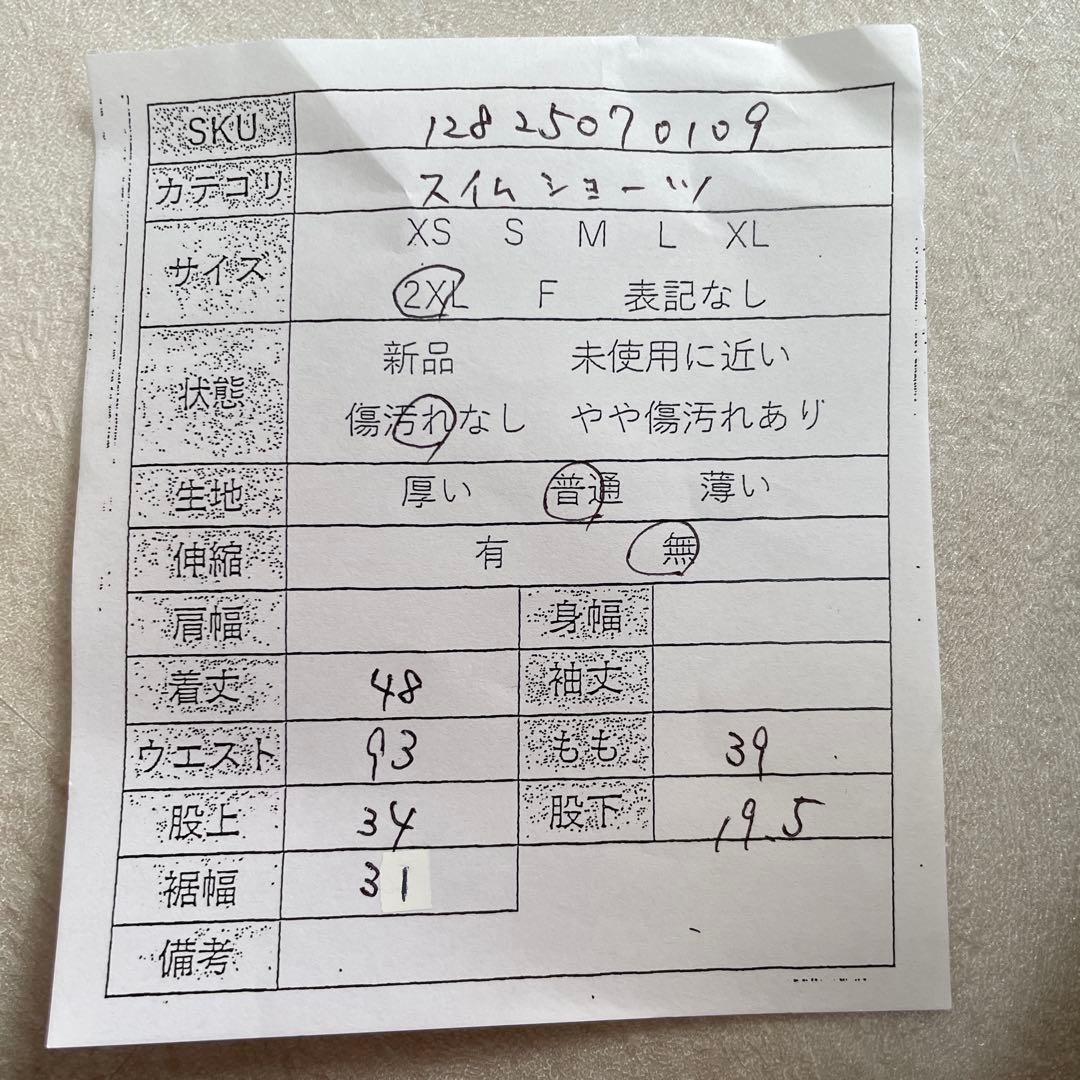 SKU 12825070109
カテゴリ スイムショーツ
サイズ XS S M L XL
2XL F 表記なし
状態 新品 未使用に近い
傷汚れなし やや傷汚れあり
生地 厚い 普通 薄い
伸縮 有 無
肩幅 身幅
着丈 48 袖丈
ウエスト 93 もも 39
股上 34 股下 19.5
裾幅 31
備考